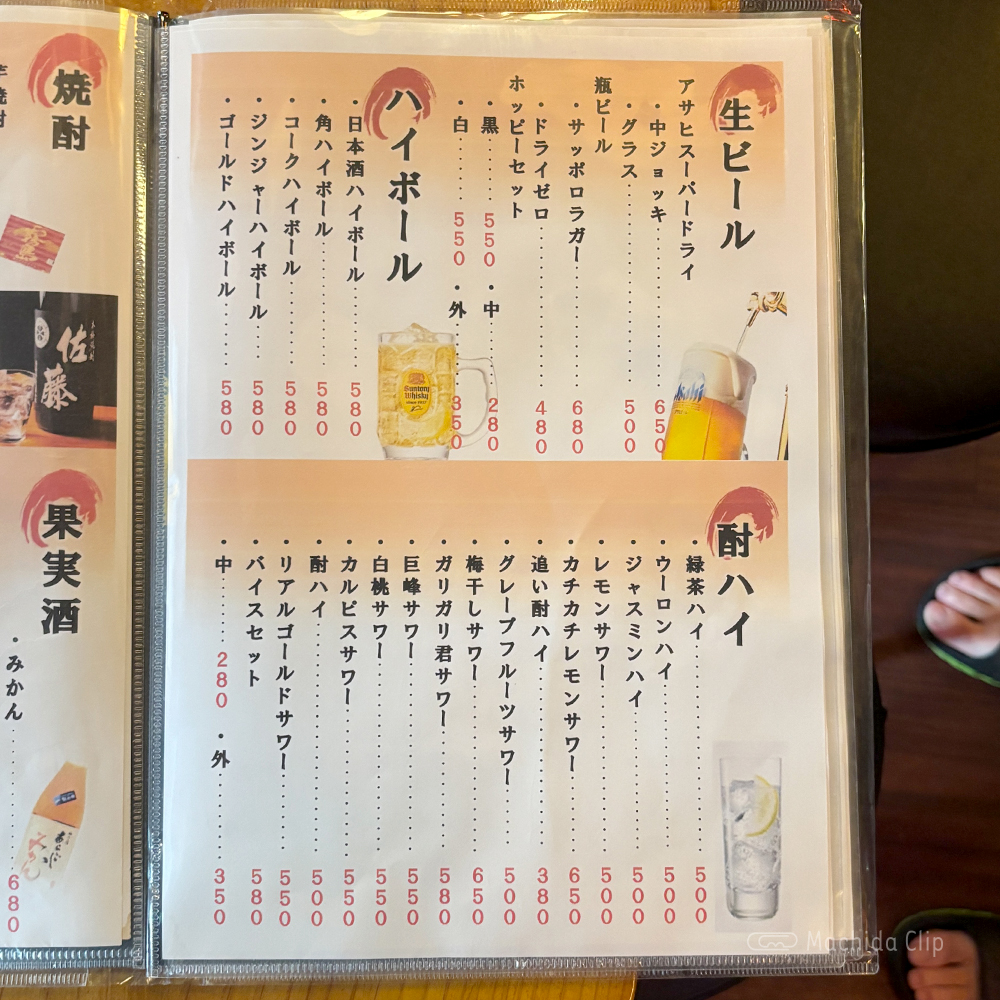 生ビール
アサヒスーパードライ
・中ジョッキ 650
・グラス 500
瓶ビール
・サッポロラガー 680
・ドライゼロ 480
ホッピーセット
・黒 550 ・中 280
・白 550 ・外 350
ハイボール
・日本酒ハイボール 580
・角ハイボール 580
・コークハイボール 580
・ジンジャーハイボール 580
・ゴールドハイボール 580
Asahi
Suntory
Whisky
酎ハイ
・緑茶ハイ 500
・ウーロンハイ 500
・ジャスミンハイ 500
・レモンサワー 500
・カチカチレモンサワー 650
・追い酎ハイ 380
・グレープフルーツサワー 500
・梅干しサワー 650
・ガリガリ君サワー 580
・巨峰サワー 550
・白桃サワー 550
・カルピスサワー 550
・酎ハイ 500
・リアルゴールドサワー 550
・バイスセット 580
・中 280 ・外 350
焼酎
芋焼酎
佐藤
果実酒
・みかん 680
Machida Clip